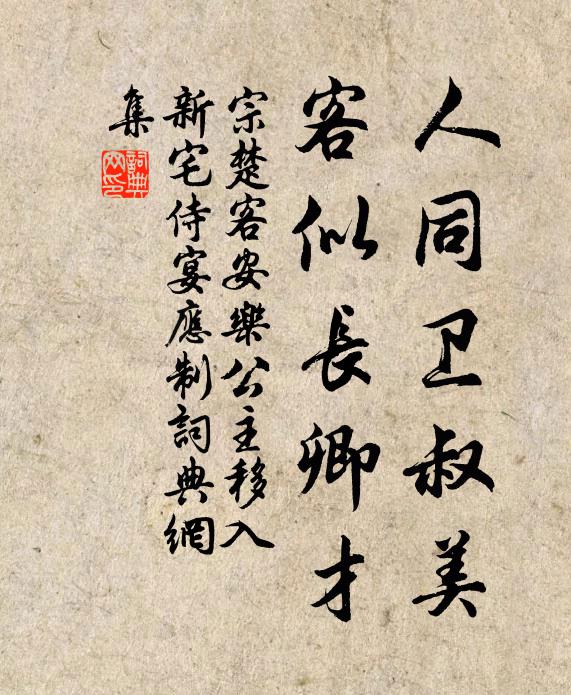 人同卫叔美
客似長卿才
宗楚客安樂公主移入
新宅侍宴應制詞典網
集
詞典
网印